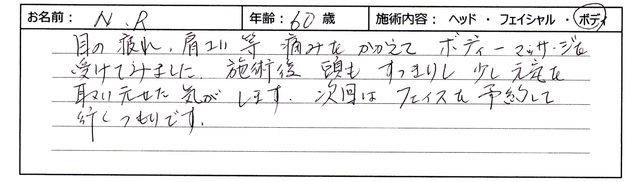 お名前： N.R 年齢：60歳 施術内容：ヘッド・フェイシャル・ボディ
目の疲れ、肩コリ等 痛みをかかえて ボディーマッサージを
受けてみました。施術後 頭もすっきりし 少し元気を
取り元せた気がします。次回はフェイスを予約して
行くつもりです。